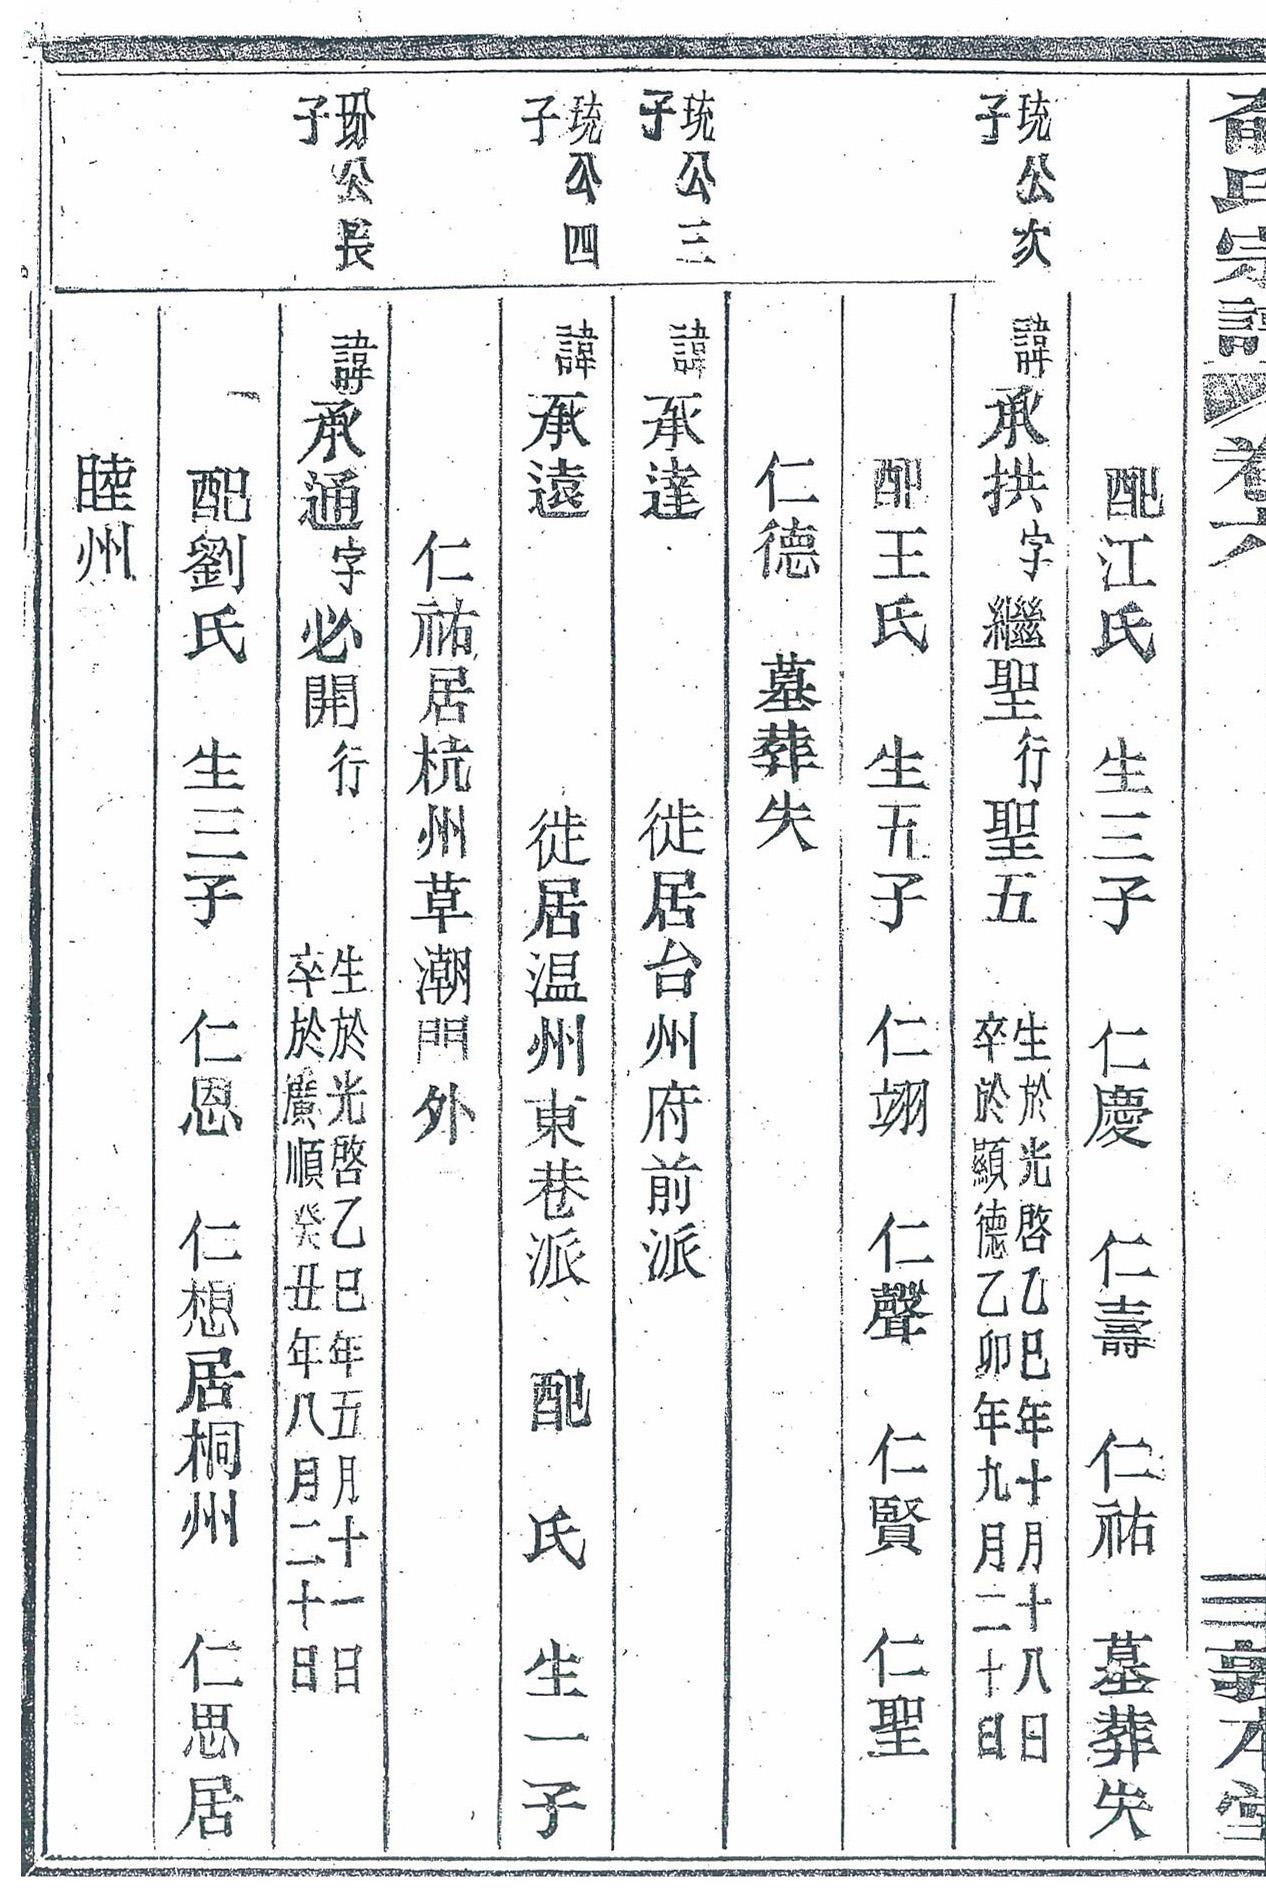 氏宗譜 卷六 三 敦本堂
配江氏 生三子 仁慶 仁壽 仁祐 墓葬失
琉公次子
諱承拱字繼聖行聖五 生於光啓乙巳年十月十八日
卒於顯德乙卯年九月二十日
配王氏 生五子 仁翊 仁聲 仁賢 仁聖
仁德 墓葬失
琉公三子
諱承達 徙居台州府前派
琉公四子
諱承遠 徙居温州東巷派 配 氏 生一子
仁祐居杭州草潮門外
公長子
諱承通字必開行 生於光啓乙巳年五月十一日
卒於廣順癸丑年八月二十日
配劉氏 生三子 仁恩 仁想居桐州 仁思居
睦州